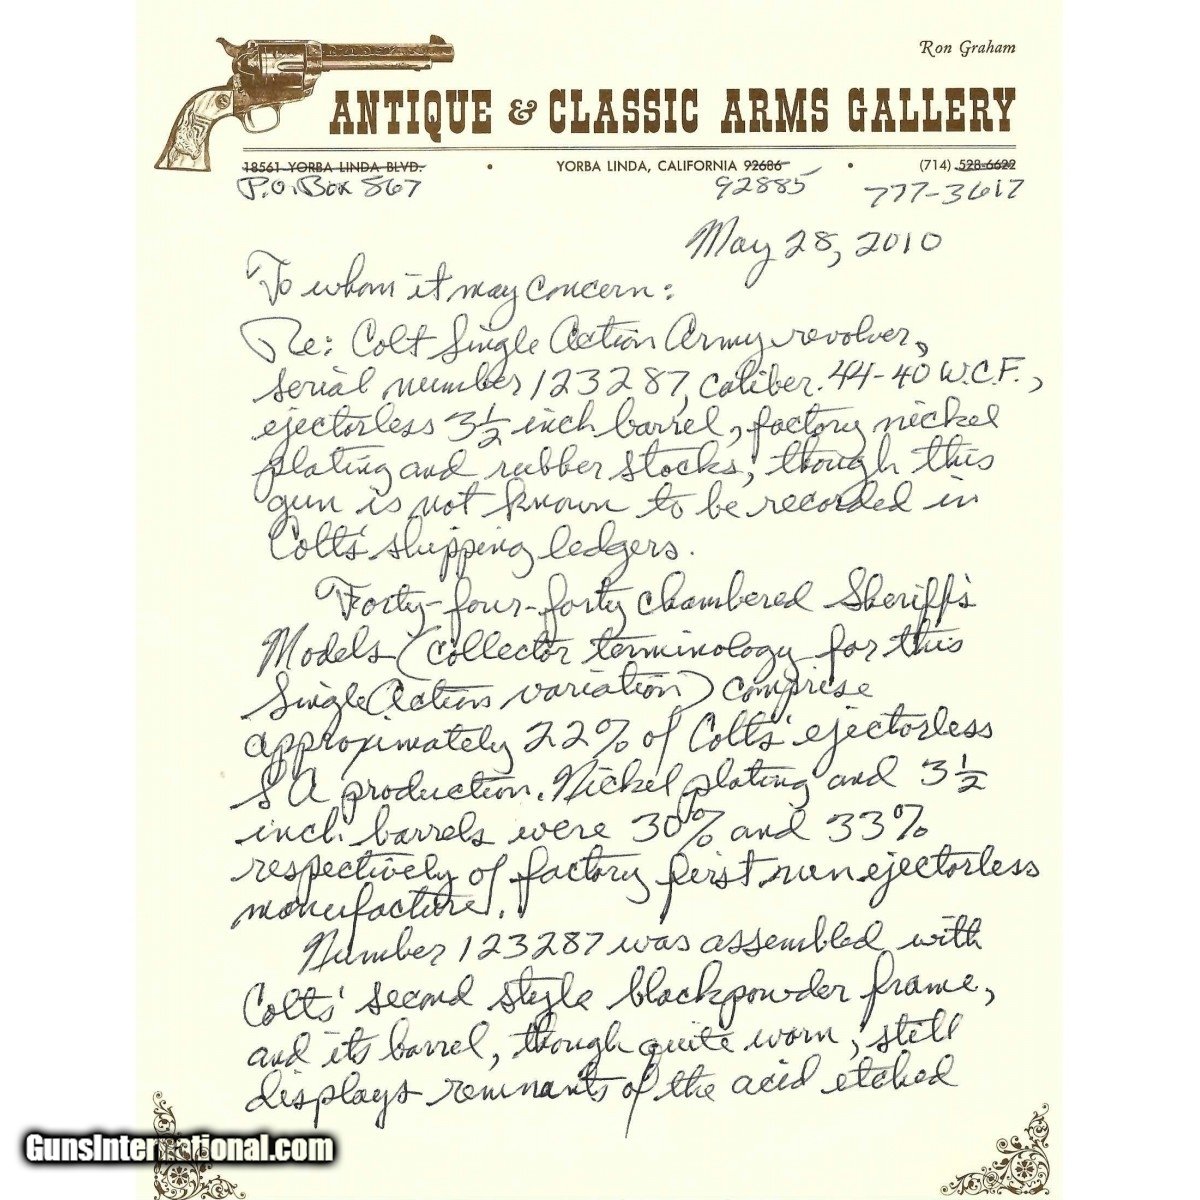 Ron Graham
ANTIQUE & CLASSIC ARMS GALLERY
18561 YORBA LINDA BLVD. • YORBA LINDA, CALIFORNIA 92686 • (714) 528-6622
P.O. Box 867 92885 777-3617
May 28, 2010
To whom it may concern:
Re: Colt Single Action Army revolver,
serial number 123287, caliber .44-40 W.C.F.,
ejectorless 3½ inch barrel, factory nickel
plating and rubber stocks, though this
gun is not known to be recorded in
Colts' shipping ledgers.
Forty-four-forty chambered Sheriff's
Models (collector terminology for this
Single Action variation) comprise
approximately 22% of Colts' ejectorless
SA production. Nickel plating and 3½
inch barrels were 30% and 33%
respectively of factory first run ejectorless
manufacture.
Number 123287 was assembled with
Colts' second style blackpowder frame,
and its barrel, though quite worn, still
displays remnants of the acid etched
GunsInternational.com